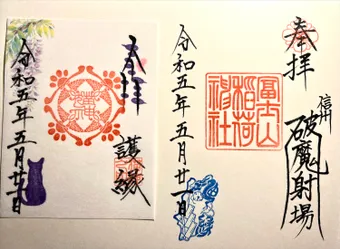 奉拝
信州
破魔射場
冨士山
稲荷
神社
令和五年五月廿一日
奉拝
護縁
令和五年五月廿一日